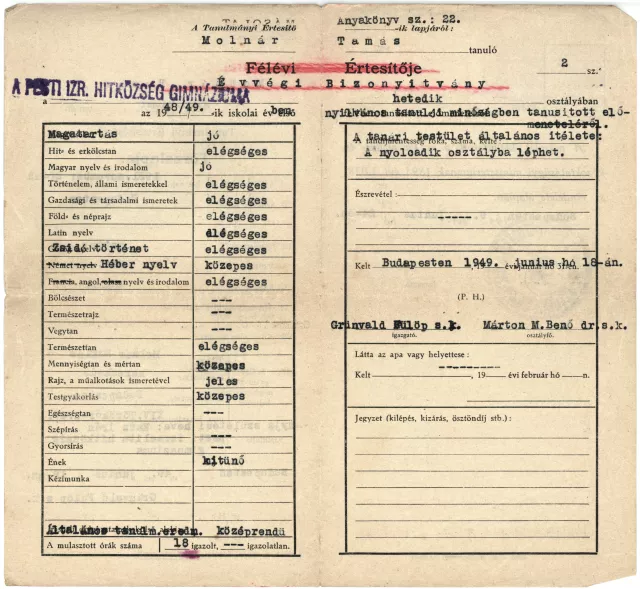 Anyakönyv sz.: 22.
A Tanulmányi Értesítő -ik lapjáról:
Molnár Tamás
tanuló
Félévi Értesítője 2 sz.
Évvégi Bizonyitvány
A PESTI IZR. HITKÖZSÉG GIMNÁZIUMA
hetedik osztályában
a az 19 48/49. -ik iskolai év ben nyilvános tanuló minőségben tanusított elő-
meneteléről.
Magatartás jó
Hit- és erkölcstan elégséges
Magyar nyelv és irodalom jó
Történelem, állami ismeretekkel elégséges
Gazdasági és társadalmi ismeretek elégséges
Föld- és néprajz elégséges
Latin nyelv elégséges
Zsidó történet elégséges
Német nyelv Héber nyelv közepes
Francia, angol, olasz nyelv és irodalom elégséges
Bölcsészet ---
Természetrajz ---
Vegytan ---
Természettan elégséges
Mennyiségtan és mértan közepes
Rajz, a műalkotások ismeretével jeles
Testgyakorlás közepes
Egészségtan ---
Szépírás ---
Gyorsírás ---
Ének kitünő
Kézimunka
Általános tanulm.eredm. középrendü
A mulasztott órák száma 18 igazolt, --- igazolatlan.
A tanári testület általános itélete:
A nyolcadik osztályba léphet.
Észrevétel:
-----
Kelt Budapesten 1949. junius hó 18-án.
(P. H.)
Grünvald Fülöp s.k. Márton M.Benő dr.s.k.
igazgató. osztályfő.
Látta az apa vagy helyettese:
--------
Kelt , 19 évi február hó n.
Jegyzet (kilépés, kizárás, ösztöndíj stb.):